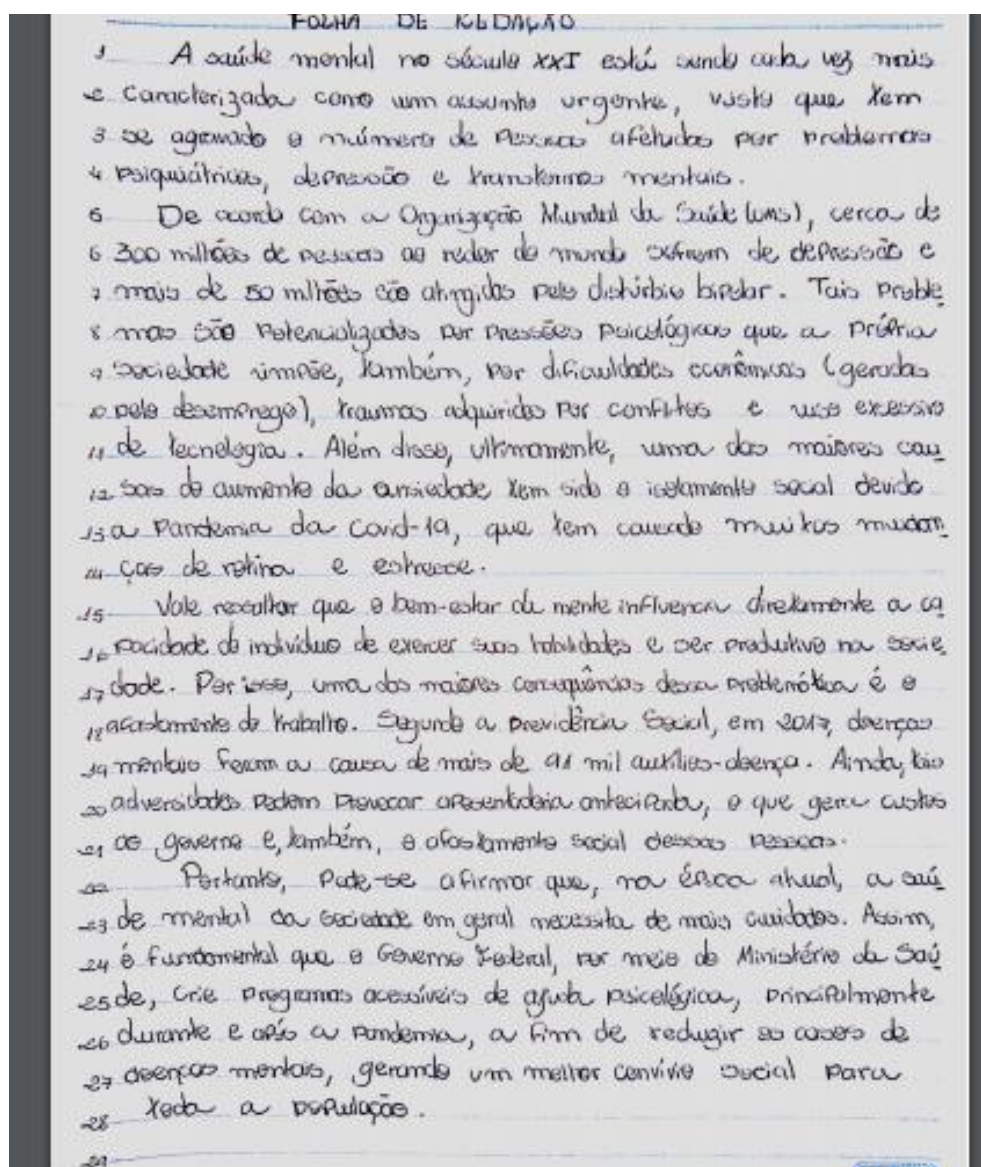 FOLHA DE REDAÇÃO
1 A saúde mental no século XXI está sendo cada vez mais
2 caracterizada como um assunto urgente, visto que tem
3 se agravado o número de pessoas afetadas por problemas
4 psiquiátricos, depressão e transtornos mentais.
5 De acordo com a Organização Mundial da Saúde (oms), cerca de
6 300 milhões de pessoas ao redor do mundo sofrem de depressão e
7 mais de 50 milhões são atingidos pelo distúrbio bipolar. Tais proble
8 mas são potencializados por pressões psicológicas que a própria
9 sociedade impõe, também, por dificuldades econômicas (geradas
10 pelo desemprego), traumas adquiridos por conflitos e uso excessivo
11 de tecnologia. Além disso, ultimamente, uma das maiores cau
12 sas do aumento da ansiedade tem sido o isolamento social devido
13 a Pandemia da Covid-19, que tem causado muitas mudan
14 ças de rotina e estresse.
15 Vale ressaltar que o bem-estar da mente influencia diretamente a ca
16 pacidade do indivíduo de exercer suas habilidades e ser produtivo na socie
17 dade. Por isso, uma das maiores consequências dessa problemática é o
18 afastamento do trabalho. Segundo a previdência Social, em 2017, doenças
19 mentais foram a causa de mais de 91 mil auxílios-doença. Ainda, tais
20 adversidades podem provocar aposentadoria antecipada, o que gera custos
21 ao governo e, também, o afastamento social dessas pessoas.
22 Portanto, pode-se afirmar que, na época atual, a saú
23 de mental da sociedade em geral necessita de mais cuidados. Assim,
24 é fundamental que o Governo Federal, por meio do Ministério da Saú
25 de, crie programas acessíveis de ajuda psicológica, principalmente
26 durante e após a pandemia, a fim de reduzir os casos de
27 doenças mentais, gerando um melhor convívio social para
28 toda a população.
29